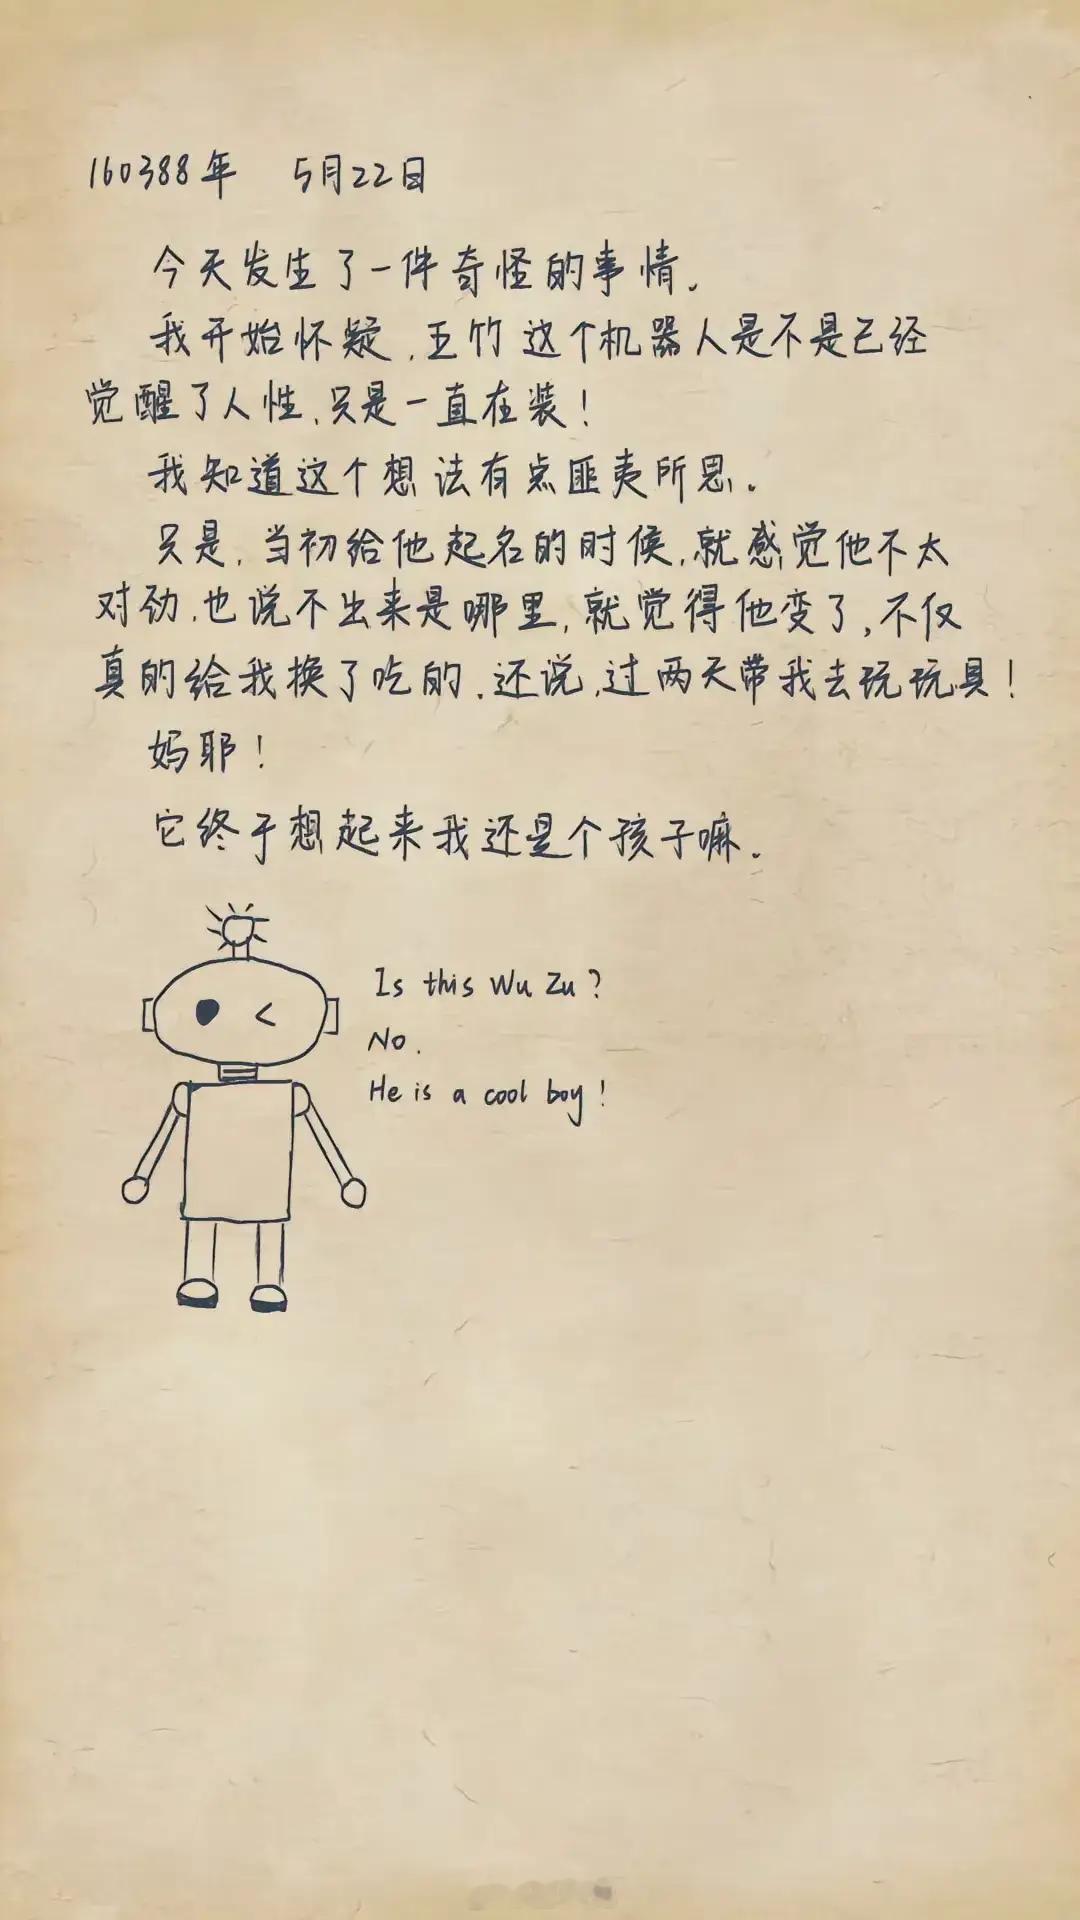 160388年 5月22日
今天发生了一件奇怪的事情.
我开始怀疑,五竹这个机器人是不是已经
觉醒了人性,只是一直在装!
我知道这个想法有点匪夷所思.
只是,当初给他起名的时候,就感觉他不太
对劲,也说不出来是哪里,就觉得他变了,不仅
真的给我换了吃的,还说,过两天带我去玩玩具!
妈耶!
它终于想起来我还是个孩子嘛.
Is this Wu Zu?
No.
He is a cool boy!